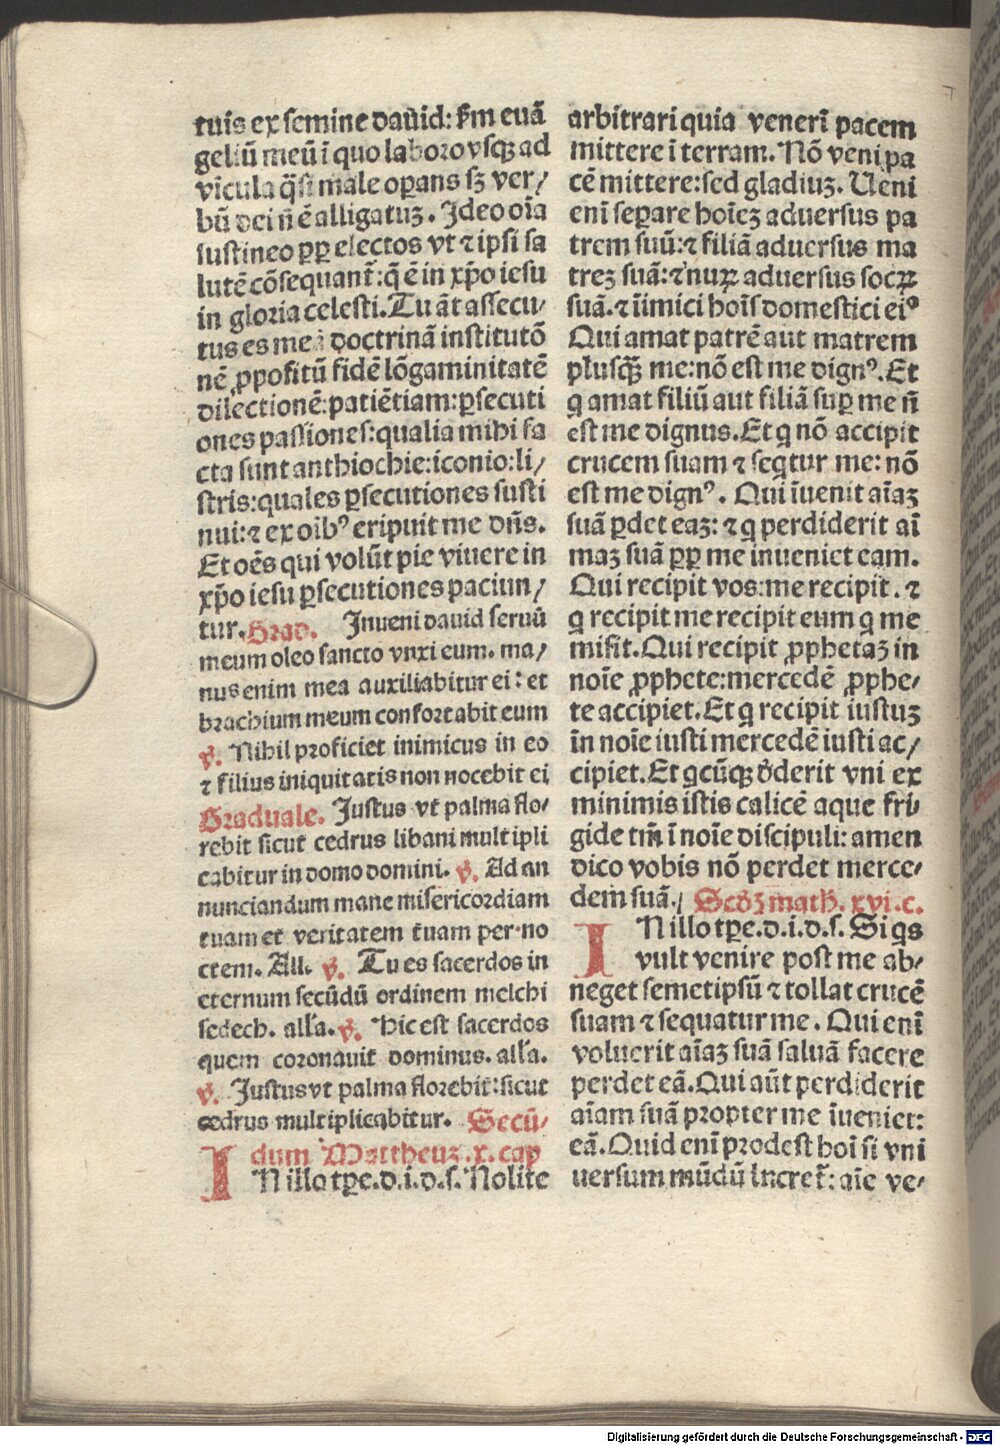 tuis ex semine dauid: scḋm euā
geliū meū ī quo laboro vsqꝫ ad
vīcula q̄si male oꝑans sꝫ ver/
bū dei nō ē alligatuꝫ. Ideo oīa
sustineo ꝓpꝑ electos vt ⁊ ipsi sa
lutē cōsequant̄: q̄ ē in xp̄o iesu
in gloria celesti. Tu āt assecu/
tus es meā doctrinā institutō
nē ꝓpositū fidē lōgaminitatē
dilectionē: patiētiam: ꝑsecuti
ones passiones: qualia mihi fa
cta sunt anthiochie: iconio: li/
stris: quales ꝑsecutiones susti
nui: ⁊ ex oībꝰ eripuit me dn̄s.
Et oēs qui volūt pie viuere in
xp̄o iesu ꝑsecutiones paciun/
tur. Grad. Inueni dauid seruū
meum oleo sancto vnxi eum. ma/
nus enim mea auxiliabitur ei: et
brachium meum confortabit eum
℣. Nihil proficiet inimicus in eo
⁊ filius iniquitatis non nocebit ei
Graduale. Justus vt palma flo-
rebit sicut cedrus libani multipli
cabitur in domo domini. ℣. Ad an
nunciandum mane misericordiam
tuam et veritatem tuam per no
ctem. All. ℣. Tu es sacerdos in
eternum secūdū ordinem melchi
sedech. alľa. ℣. Hic est sacerdos
quem coronauit dominus. alľa.
℣. Justus vt palma florebit: sicut
cedrus multiplicabitur. Secū/
dum Mattheuꝫ .x. cap
IN illo tꝑe.d.i.d.s. Nolite
arbitrari quia venerī pacem
mittere ī terram. Nō veni pa
cē mittere: sed gladiuꝫ. Ueni
enī seꝑare hoīeꝫ aduersus pa
trem suū: ⁊ filiā aduersus ma
treꝫ suā: ⁊ nurꝝ aduersus socrꝝ
suā. ⁊ īimici hoīs domestici eiꝰ
Qui amat patrē aut matrem
plusq̄ꝫ me: nō est me dignꝰ. Et
q̇ amat filiū aut filiā suꝑ me nō
est me dignus. Et q̇ nō accipit
crucem suam ⁊ seq̇tur me: nō
est me dignꝰ. Qui īuenit aīaꝫ
suā ꝑdet eaꝫ: ⁊ q̇ perdiderit aī
maꝫ suā ꝓpꝑ me inueniet eam.
Qui recipit vos: me recipit. ⁊
q̇ recipit me recipit eum q̇ me
misit. Qui recipit ꝓphetaꝫ in
noīe ꝓphete: mercedē ꝓphe/
te accipiet. Et q̇ recipit iustuꝫ
īn noīe iusti mercedē iusti ac/
cipiet. Et q̇cūqꝫ dederit vni ex
minimis istis calicē aque fri/
gide tm̄ ī noīe discipuli: amen
dico vobis nō perdet merce/
dem suā./ Scḋꝫ math. xvi. c.
IN illo tꝑe.d.i.d.s. Si q̇s
vult venire post me ab/
neget semetipsū ⁊ tollat crucē
suam ⁊ sequatur me. Qui enī
voluerit aīaꝫ suā saluā facere
perdet eā. Qui aūt perdiderit
aīam suā propter me īueniet:
eā. Quid enī prodest hoī si vni
uersum mūdū lucret̄: aīe ve/
Digitalisierung gefördert durch die Deutsche Forschungsgemeinschaft - DFG